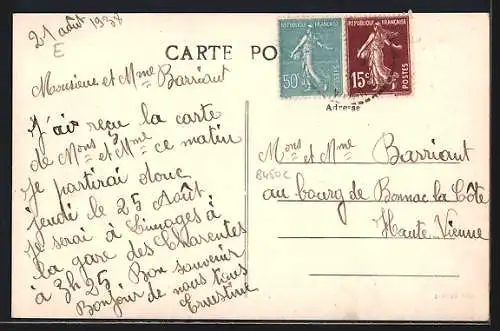 21 août 1938
E
CARTE PO
RÉPUBLIQUE FRANÇAISE
50c
POSTES
RÉPUBLIQUE FRANÇAISE
15c
POSTES
Adresse
Monsieur et Mme Barriant
J'ai reçu la carte
de Mons et Mme ce matin
Je partirai donc
jeudi le 25 Août
Je serai à Limoges à
la gare des Charentes
à 3h 25 Bon souvenir
Bonjour de nous tous
Ernestine
Mons et Mme Barriant
au bourg de Bonnac la Côte
Haute Vienne